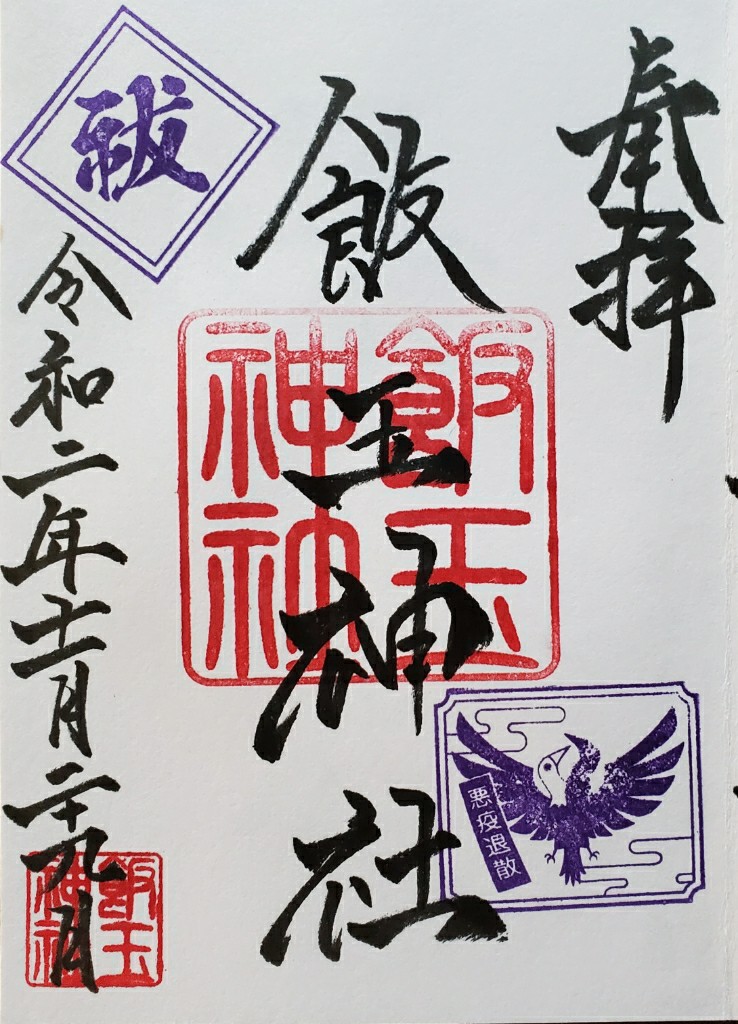 奉拝
飯玉神社
飯玉
神社
悪疫退散
祓
令和二年十一月二十九日
飯玉
神社